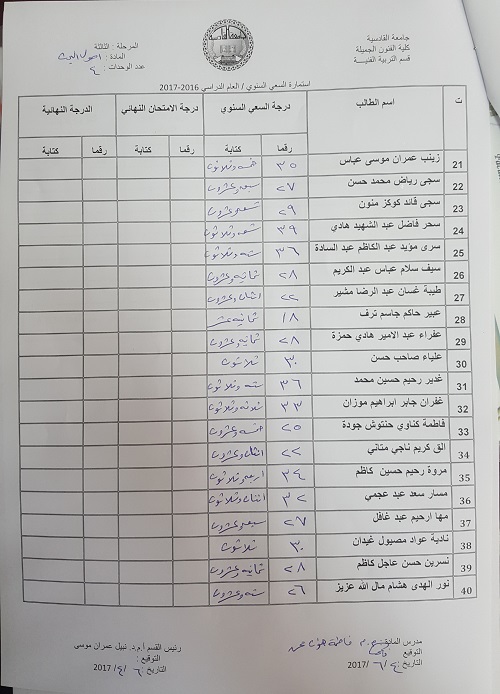 جامعة القادسية
كلية الفنون الجميلة
قسم التربية الفنيـــة
المرحلة : الثالثة
المادة : اصول البحث
عدد الوحدات : ٤
استمارة السعي السنوي / العام الدراسي 2016-2017
ت اسم الطالب درجة السعي السنوي درجة الامتحان النهائي الدرجة النهائية
رقما كتابة رقما كتابة رقما كتابة
21 زينب عمران موسى عباس ٣٥ خمسة وثلاثون
22 سجى رياض محمد حسن ٢٧ سبعة وعشرون
23 سجى قائد كوكز منون ٢٩ تسعة وعشرون
24 سحر فاضل عبد الشهيد هادي ٣٩ تسعة وثلاثون
25 سرى مؤيد عبد الكاظم عبد السادة ٣٦ ستة وثلاثون
26 سيف سلام عباس عبد الكريم ٢٨ ثمانية وعشرون
27 طيبة غسان عبد الرضا مشير ٢٢ اثنان وعشرون
28 عبير حاكم جاسم ترف ١٨ ثمانية عشر
29 عفراء عبد الامير هادي حمزة ٢٨ ثمانية وعشرون
30 علياء صاحب حسن ٣٠ ثلاثون
31 غدير رحيم حسين محمد ٣٦ ستة وثلاثون
32 غفران جابر ابراهيم موزان ٣٣ ثلاثة وثلاثون
33 فاطمة كناوي حنتوش جودة ٢٥ خمسة وعشرون
34 الق كريم ناجي متاني ٢٢ اثنان وعشرون
35 مروة رحيم حسين كاظم ٣٤ اربعة وثلاثون
36 مسار سعد عبد عجمي ٣٢ اثنان وثلاثون
37 مها ارحيم عبد غافل ٢٧ سبعة وعشرون
38 نادية عواد مصبول غيدان ٣٠ ثلاثون
39 نسرين حسن عاجل كاظم ٢٨ ثمانية وعشرون
40 نور الهدى هشام مال الله عزيز ٢٦ ستة وعشرون
مدرس المادة فاطمة
التوقيع
التاريخ ٦/٤/ 2017
رئيس القسم أ.م.د. نبيل عمران موسى
التوقيع :
التاريخ : ٦/٤/ 2017